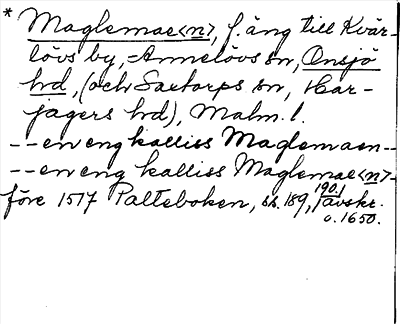 * Maglemae<n>, f. äng till Kvär-
lövs by, = Annelövs sn, Onsjö
hrd, (och Saxtorps sn, Har-
jagers hrd), Malm. l.
-- en eng kalliss Maglemaen --
-- en eng kalliss Maglemae<n> -
före 1517 Palteboken, ss. 189, 190.1 avskr.
o. 1650.